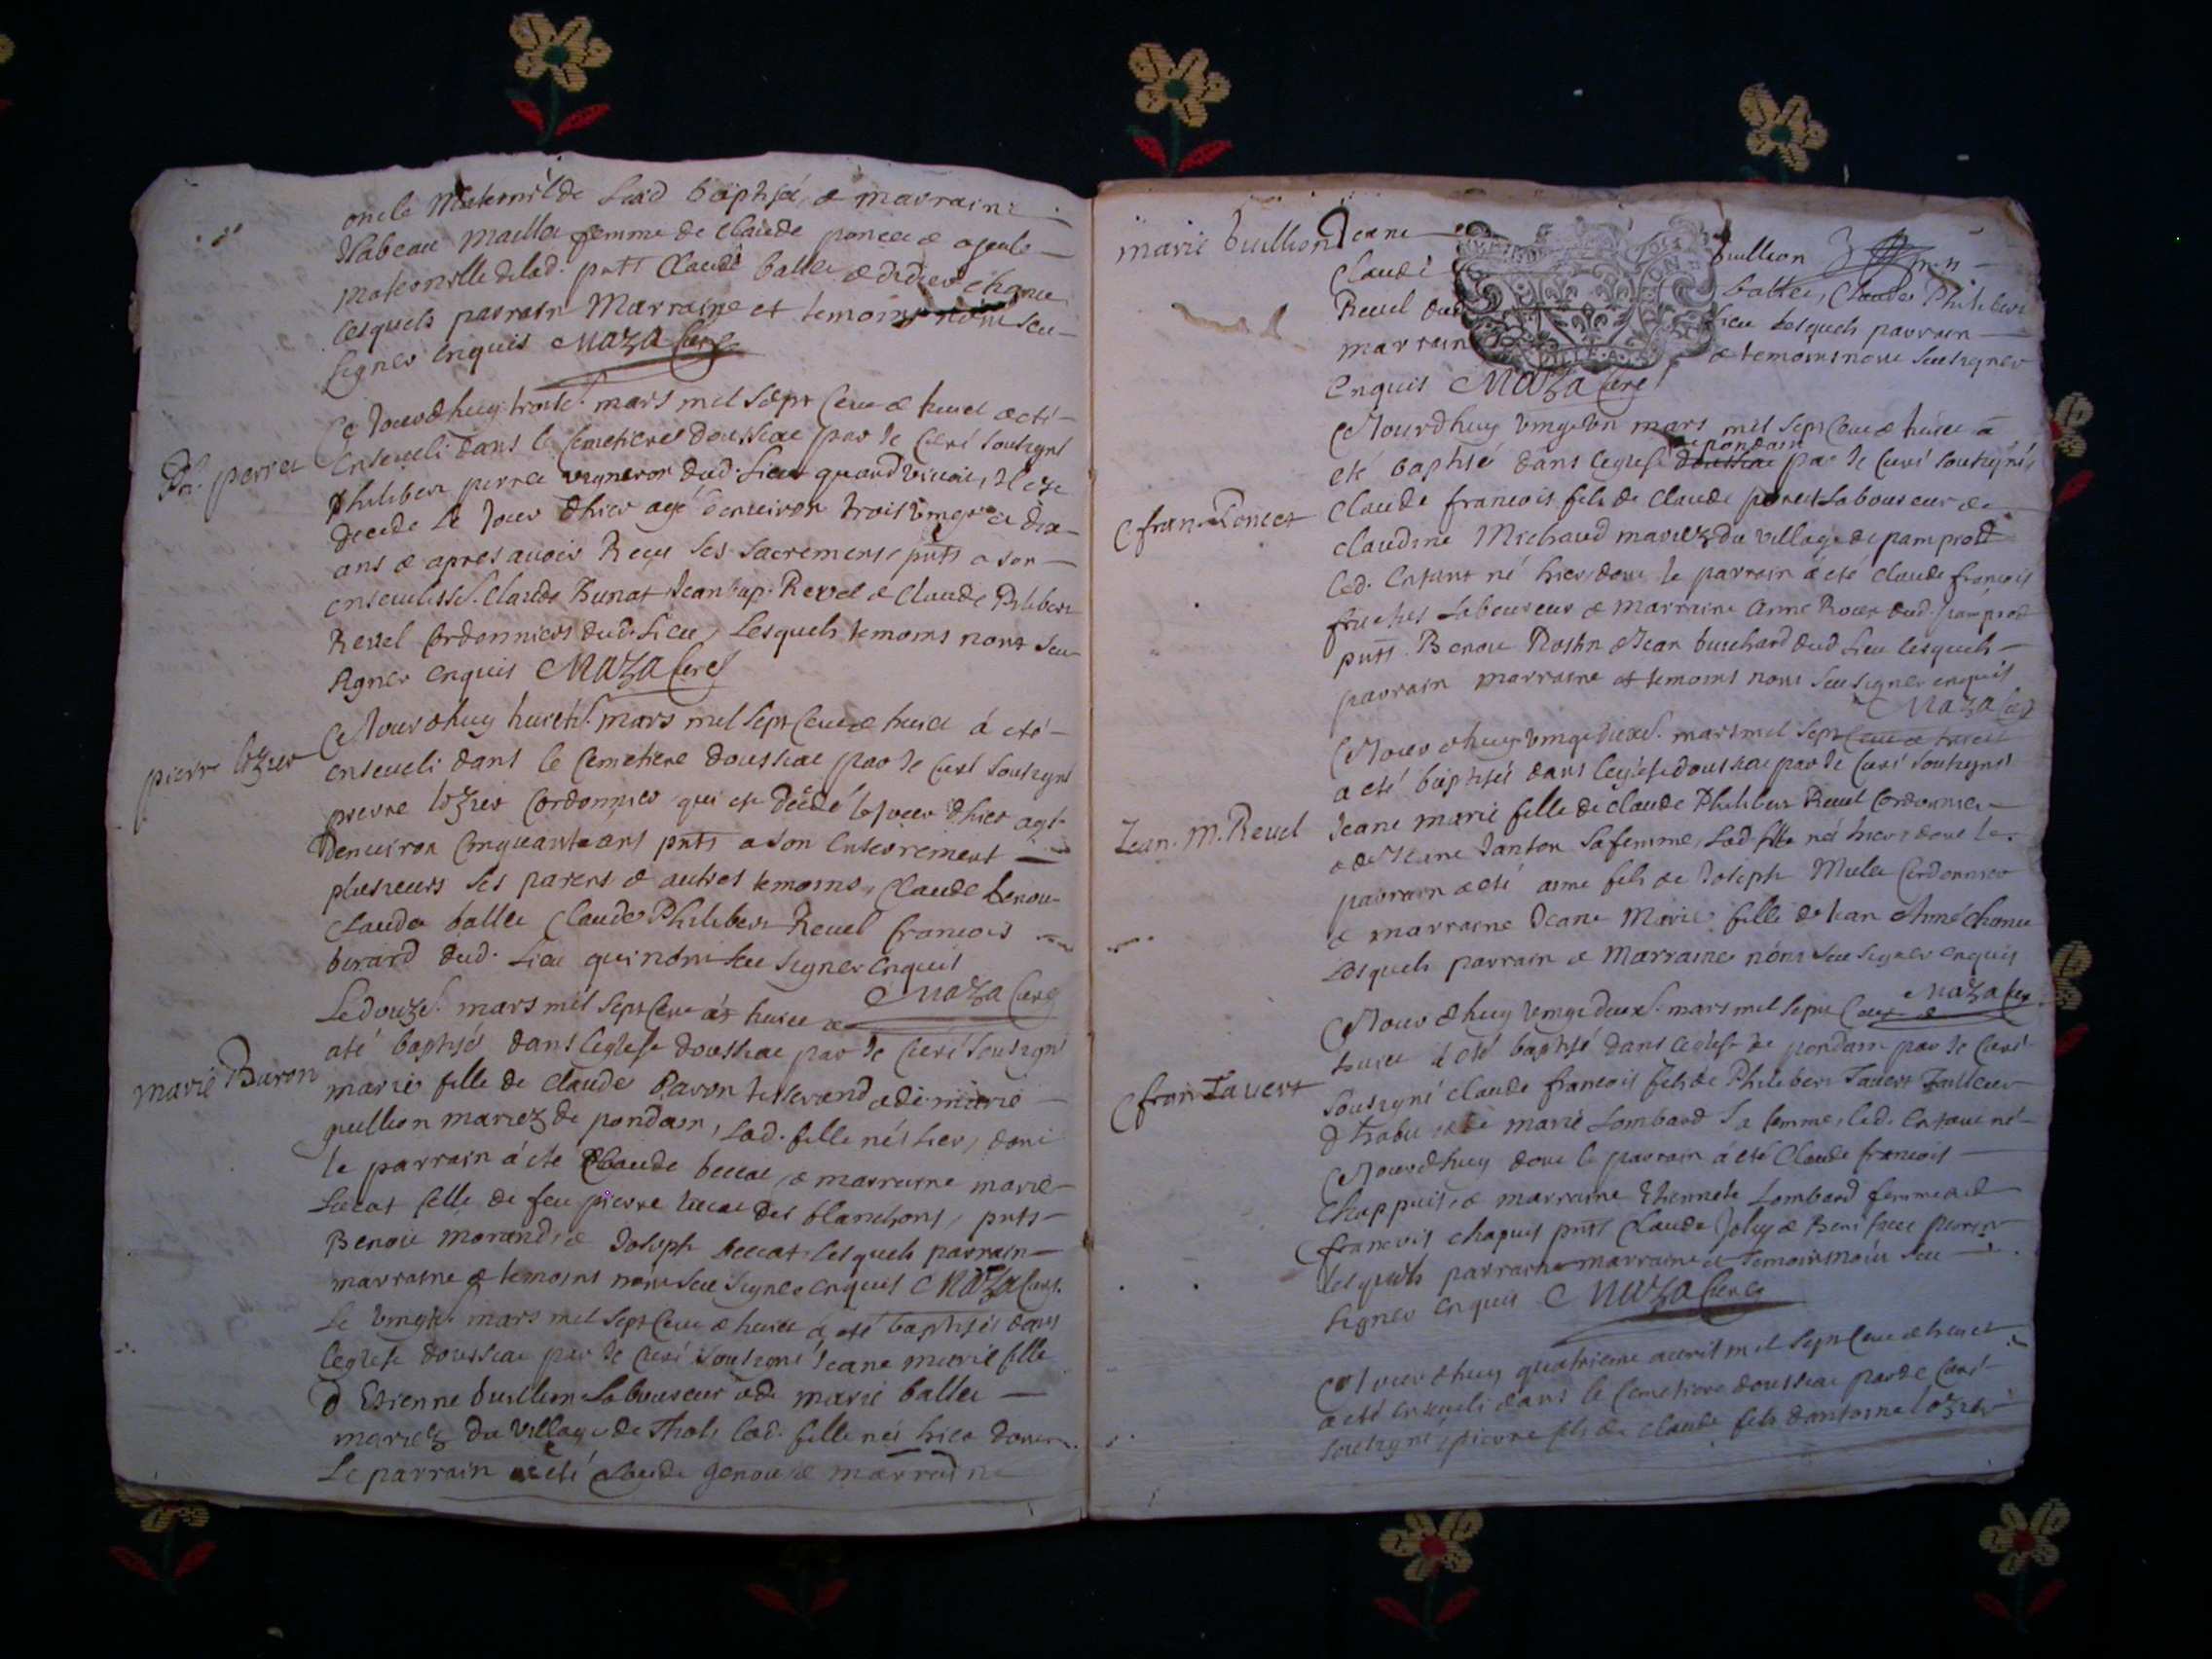 oncle Maternel de lad baptisée, & marraine
Isabeau Maillet femme de Claude poncet & ayeule
Maternelle de lad. puts Claude ballet & didier chanu
lesquels parrain Marraine et temoins n'ont sceu
signer enquis Maza Curé
Ce Jourdhuy trois. mars mil sept cent & huict a été
Ph. perret
enseveli dans le cemetiere doussiac par Je Curé soussigné
Philibert perret vigneron dud. Lieu quand vivoit, Il est
decede le jour d'hier agé denviron trois vingt et dix
ans & apres avoir Reçu les sacrements puts a son
ensevelissē. Claude Bunat Jean bap. Revel & Claude Philibert
Revel Cordonniers dud. Lieu, Lesquels temoins n'ont sceu
signer enquis Maza Curé
Ce Jourdhuy huict. mars mil sept cent & huict á eté
pierre lozier
enseveli dans le Cemetiere doussiac par Je Curé soussigné
pierre lozier Cordonnier qui est décédé le jour d'hier agé
denviron Cinquante ans puts a son enterrement
plusieurs ses parens & autres temoins, Claude benou
Claude ballet Claude Philibert Revel francois
berard dud. Lieu qui n'ont sceu signer enquis
Maza Curé
Le douze. mars mil sept cent & huict a
été baptisée dans leglise doussiac par Je Curé soussigné
marie Baron
marie fille de Claude Baron tisserand & de marie
guillion mariez de pondain, Lad. fille née hier, dont
le parrain á eté Claude beccat & marraine marie
beccat fille de feu pierre beccat des blanchons, puts
Benoit morand & Joseph beccat lesquels parrain
marraine & temoins n'ont sceu signer enquis Maza Curé.
Le vingt. mars mil sept cent & huict á eté baptisée dans
leglise doussiac par Je Curé soussigné Jeane marie fille
d'Etienne buillion Laboureur & de marie ballet
mariez du village de Thols lad. fille née hier dont
Le parrain a eté Claude Genou & marraine
marie buillion
Jeane buillion
Claude ballet, Claude Philibert
Revel dud Lieu lesquels parrain
marraine & temoins n'ont sceu signer
enquis Maza Curé
Ce Jourdhuy vingt un mars mil sept cent & huict a
eté baptisé dans leglise de pondain par Je Curé soussigné
C fran. Poncet
Claude francois fils de Claude poncet Laboureur &
Claudine Michaud mariez du village de pamprod
Led. Enfant né hier dont le parrain a eté Claude francois
Laboureur & Marraine Anne Roux dud. pamprod
puts. Benoit Rostin & Jean buchard dud Lieu lesquels
parrain marraine et temoins n'ont sceu signer enquis
Maza Curé
Ce Jour d'huy vingt deuxe. mars mil sept cent & huict
a eté baptisée dans leglise doussiac par Je Curé soussigné
Jean. M. Revel
Jeane marie fille de Claude Philibert Revel Cordonnier
& de Jeane Janton sa femme, Lad fille née hier, dont le
parrain a eté aimé fils de Joseph Mulet Cordonnier
& marraine Jeane Marie fille de Jean Aimé chanu
Lesquels parrain & Marraine n'ont sceu signer enquis
Maza Curé
Ce Jour d'huy vingt deuxe. mars mil sept cent &
huict á eté baptisé dans leglise de pondain par Je Curé
C fran Tavert
soussigné Claude francois fils de Philibert Tavert Tailleur
d'habit & de marie Lombard sa femme, led. Enfant né
Ce Jourdhuy dont le parrain á eté Claude francois
Chappuis, & marraine Etiennete Lombard femme dud
francois chapuis puts Claude Joly & Benoit
lesquels parrain marraine & temoins n'ont sceu
signer enquis Maza Curé
Ce Jour d'huy quatrieme avril mil sept cent & huict
a eté enseveli dans le Cemetiere doussiac par Je Curé
soussigné pierre fils de Claude fils dantoine lozier